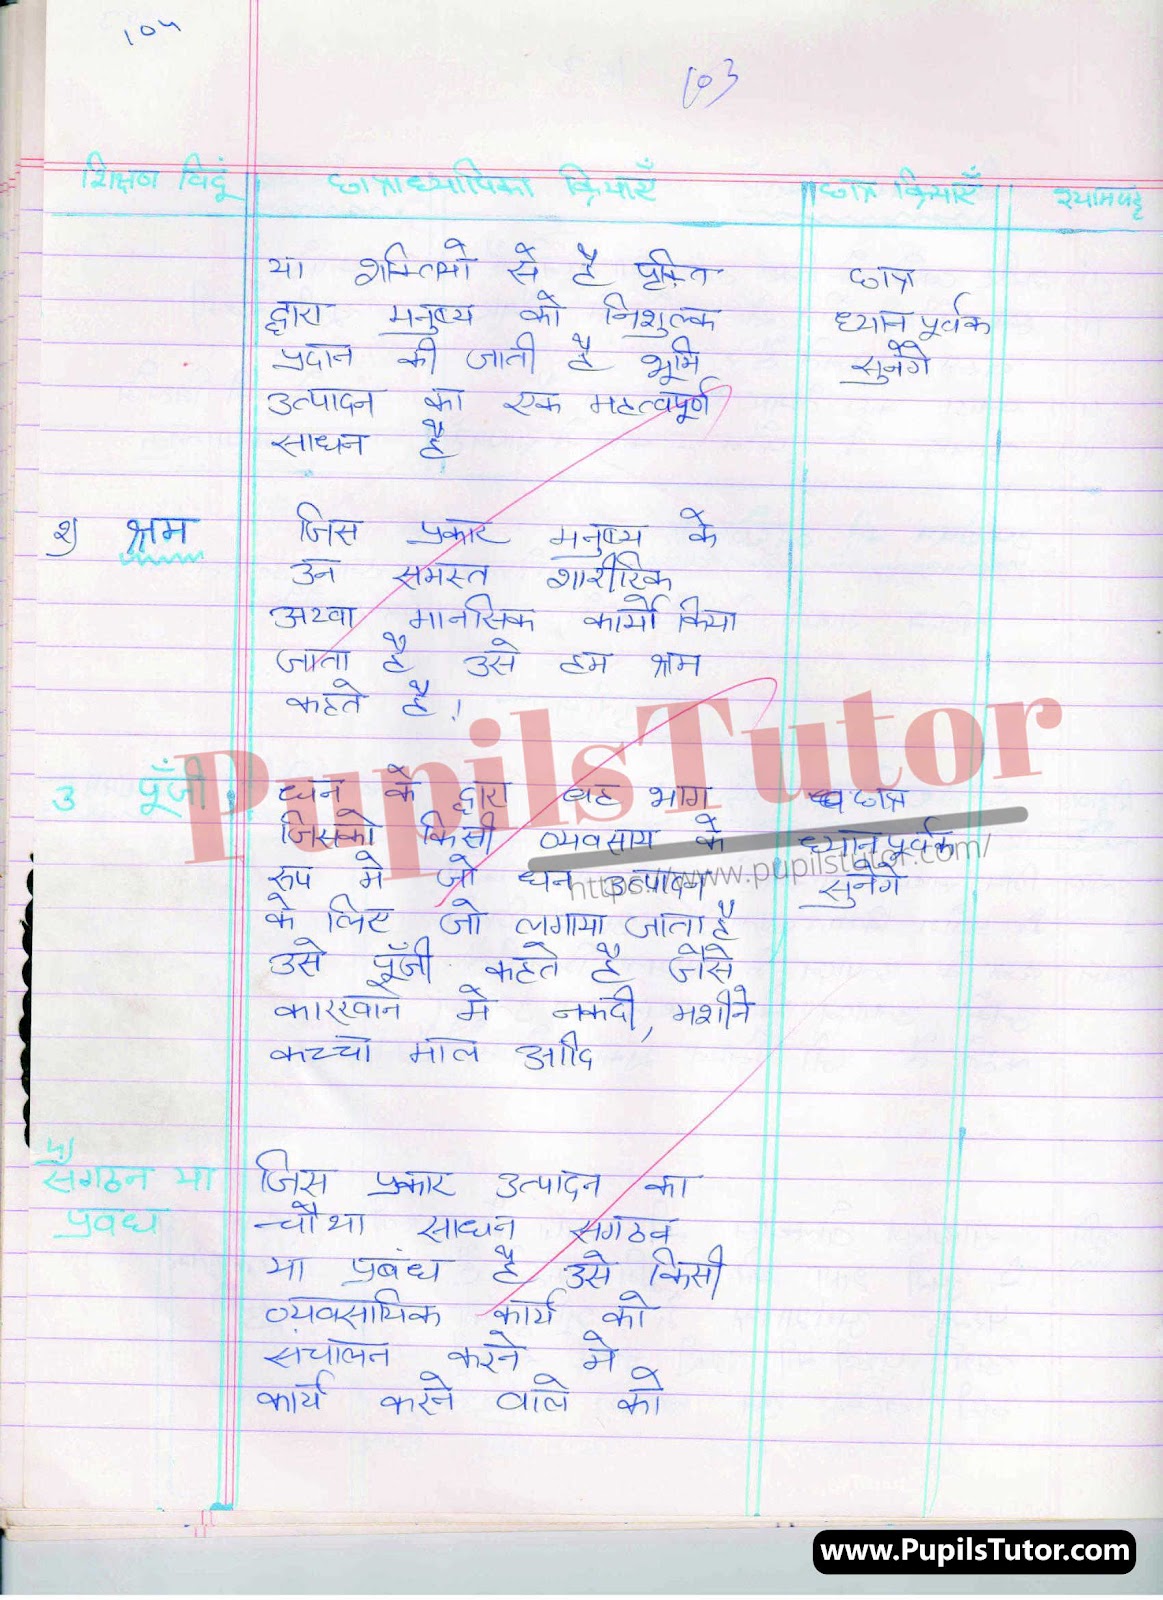 104
103
शिक्षण विदूं छात्राध्यापिका क्रियाएँ छात्र क्रियाएँ श्यामपट्ट
या शक्तियो से है प्रकृति छात्र
द्वारा मनुष्य को निशुल्क ध्यान पूर्वक
प्रदान की जाती है भूमि सुनेंगे
उत्पादन का एक महत्वपूर्ण
साधन है
2) श्रम जिस प्रकार मनुष्य के
उन समस्त शारीरिक
अथवा मानसिक कार्यो किया
जाता है उसे हम श्रम
कहते है।
PupilsTutor
3 पूँजी धन के द्वारा वह भाग छात्र
जिसको किसी व्यवसाय के ध्यान पूर्वक
रूप मे जो धन उत्पादन सुनेगे
https://www.pupilstutor.com/
के लिए जो लगाया जाता है
उसे पूँजी कहते है जैसे
कारखाने मे नकदी, मशीने
कच्चा माल आदि
4)
सगठन या जिस प्रकार उत्पादन का
प्रवध चौथा साधन सगठन
या प्रबंध है उसे किसी
व्यवसायिक कार्य को
संचालन करने मे
कार्य करने वाले को
www.PupilsTutor.com